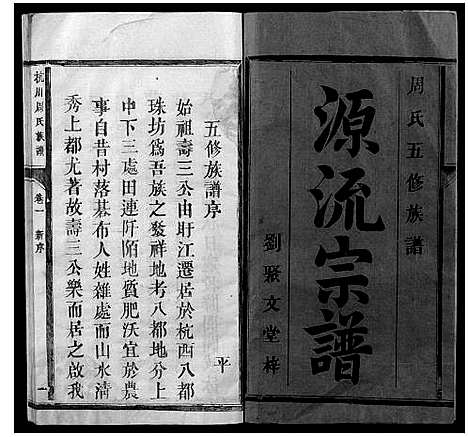 周氏五修族譜
源流宗譜
劉聚文堂梓
五修族譜序
平
始祖壽三公由盱江遷居於杭西八都
珠坊爲吾族之發祥地考八都地分上
中下三處田連阡陌地質肥沃宜於農
事自昔村落碁布人姓雜處而山水清
秀上都尤著故壽三公樂而居之啟我
杭川周氏族譜
卷一
新序
一